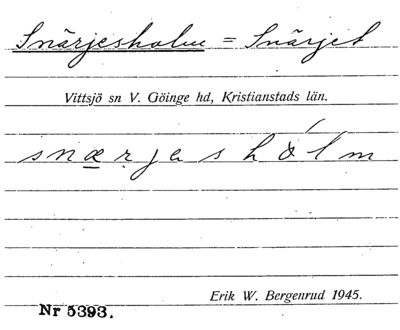 Snärjesholm = Snärjet
Vittsjö sn V. Göinge hd, Kristianstads län.
snæṛjeshólm
Erik W. Bergenrud 1945.
Nr 5393.